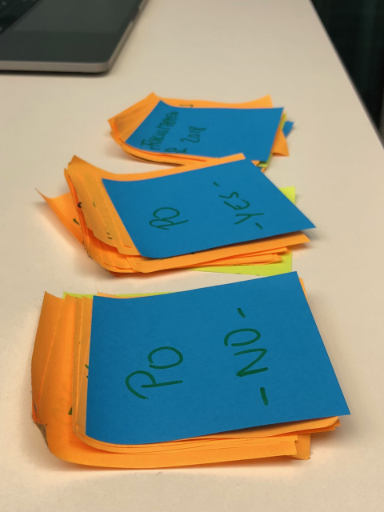 2018
PO
-YES-
PO
-NO-